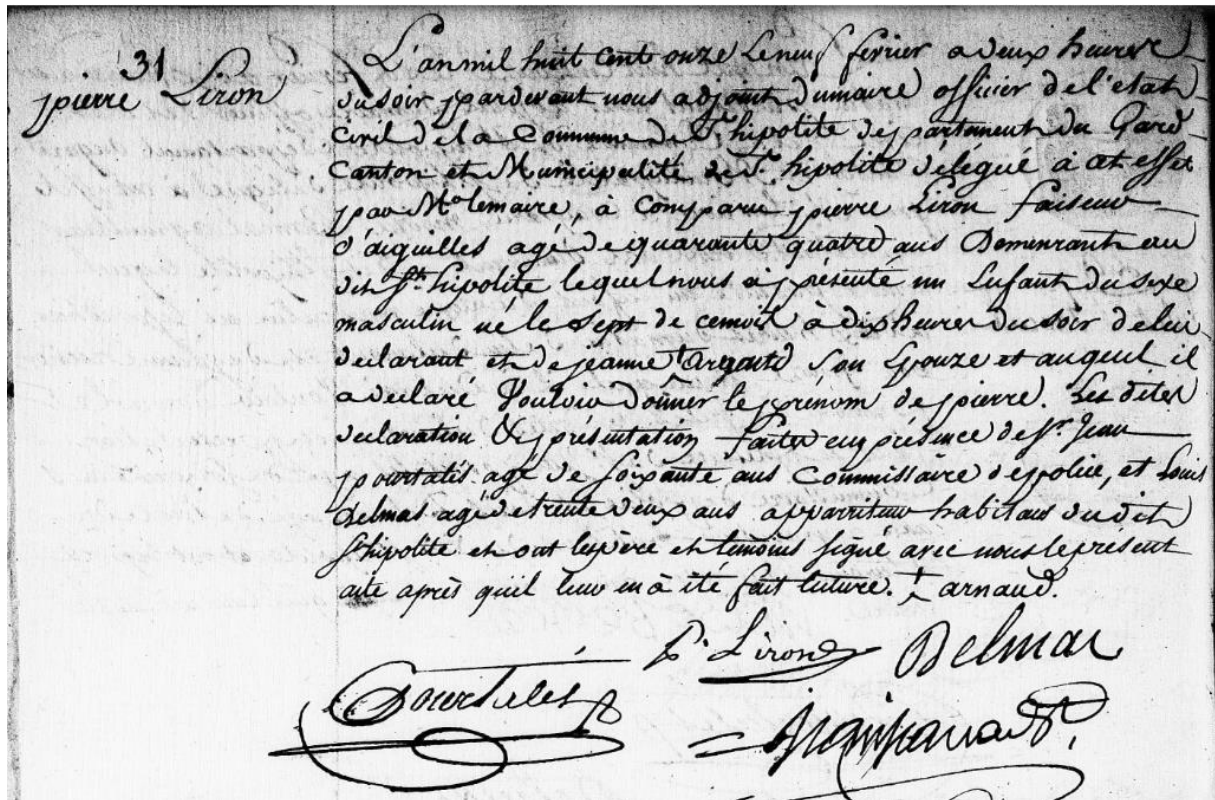 31
pierre Liron
L'an mil huit cent onze le neuf fevrier a deux heures
du soir pardevant nous adjoint du maire officier de l'état
civil de la Commune de St. hipolite departement du Gard
Canton et Municipalité de St. hipolite délégué à cet effet
par Mr. le maire, à comparu pierre Liron faiseur
d'aiguilles agé de quarante quatre ans Demeurant au
dit St. hipolite lequel nous à présenté un Enfant du sexe
masculin né le sept de ce mois à dix heures du soir de lui
declarant et de jeanne + argante son Epouze et auquel il
a declaré Vouloir donner le prénom de pierre. Les dites
declaration & présentation faites en présence de Sr. Jean
pourtalés agé de soixante ans Commissaire de police, et Louis
Delmas agé de trente deux ans apparriteur habitans du dit
St. hipolite et ont les père et temoins signé avec nous le présent
acte après qu'il leur en à été fait lecture. + arnaud.
P. Liron Delmas
Pourtalès